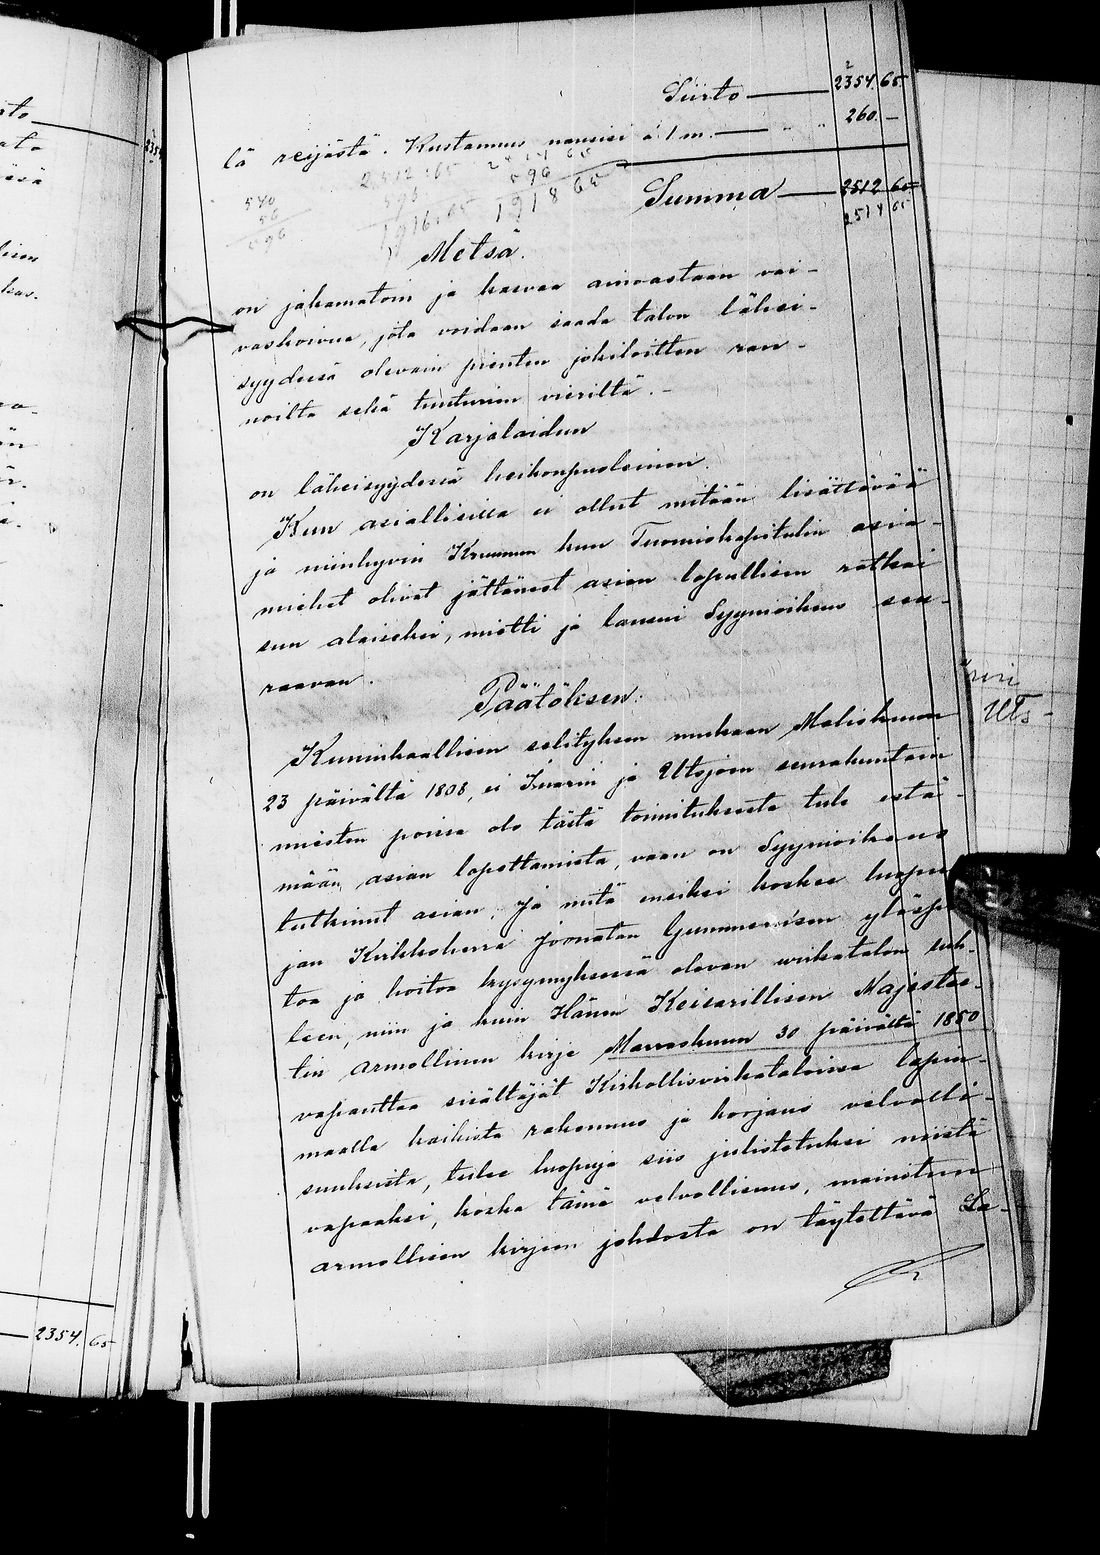 Siirto — 2354. 65
lä reijästä. Kustannus nousisi á 1 m. — 260. —
Summa — 2512 65
2514 65
540
56
596
2512:65
596
1916:05
2514 65
596
1918 65
Metsä.
on jakamatoin ja kasvaa ainoastaan vai-
vaskoivua, jota voidaan saada talon läheisi-
syydessä olevain pienten jokiloitten ran-
noilta sekä tunturien vieriltä. -
Karjalaidun
on läheisyydessä heikonpuoleinen.
Kun asiallisilla ei ollut mitään lisättävää
ja niinhyvin Kruunun kun Tuomiokapitulin asia-
miehet olivat jättäneet asian lopullisen ratkai
sun alaiseksi, mietti ja lausui Syynioikeus seu-
raavan.
Päätöksen:
Kuninkaallisen selityksen mukaan Maliskuun
23 päivältä 1808, ei Inarin ja Utsjoen seurakuntain
miesten poissa olo tästä toimituksesta tule estä-
mään asian lopettamista, vaan on Syynioikeus
tutkinut asian. Ja mitä ensiksi koskee luopu
jan Kirkkoherra Joonatan Gummerisen yläspi
toa ja hoitoa kysymyksessä olevan virkatalon suh-
teen, niin ja kuin Hänen Keisarillisen Majestee-
tin armollinen kirje Marraskuun 30 päivältä 1850
vapauttaa sisältäjät Kirkollisvirkataloissa lapin-
maalla kaikista rakennus ja korjaus velvolli-
suuksista, tulee luopuja siis julistetuksi niistä
vapaaksi, koska tämä velvollisuus, mainitun
armollisen kirjeen johdosta on täytettävä Sa-
2354. 65
Uts-